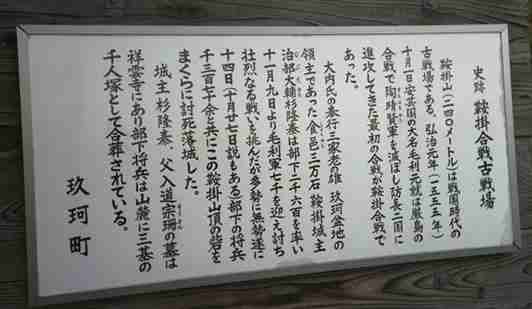 史跡 鞍掛合戦古戦場
鞍掛山(二四〇メートル)は戦国時代の
古戦場である。弘治元年(一五五五年)
十月一日安芸国の大名毛利元就は厳島の
合戦で陶晴賢軍を滅ぼし防長二国に
進攻してきた最初の合戦が鞍掛合戦で
あった。
大内氏の奉行三家老の雄 玖珂盆地の
領主であった食邑三万石 鞍掛城主
治部大輔杉隆泰は部下二千六百を率い
十一月九日より毛利軍七千を迎え討ち
壮烈なる戦いを挑んだが多勢に無勢遂に
十四日(十月廿七日説もある)部下の将兵
千三百七十余と共にこの鞍掛山頂の砦を
まくらに討死落城した。
城主杉隆泰、父入道宗珊の墓は
祥雲寺にあり部下将兵は山麓に三基の
千人塚として合葬されている。
玖珂町